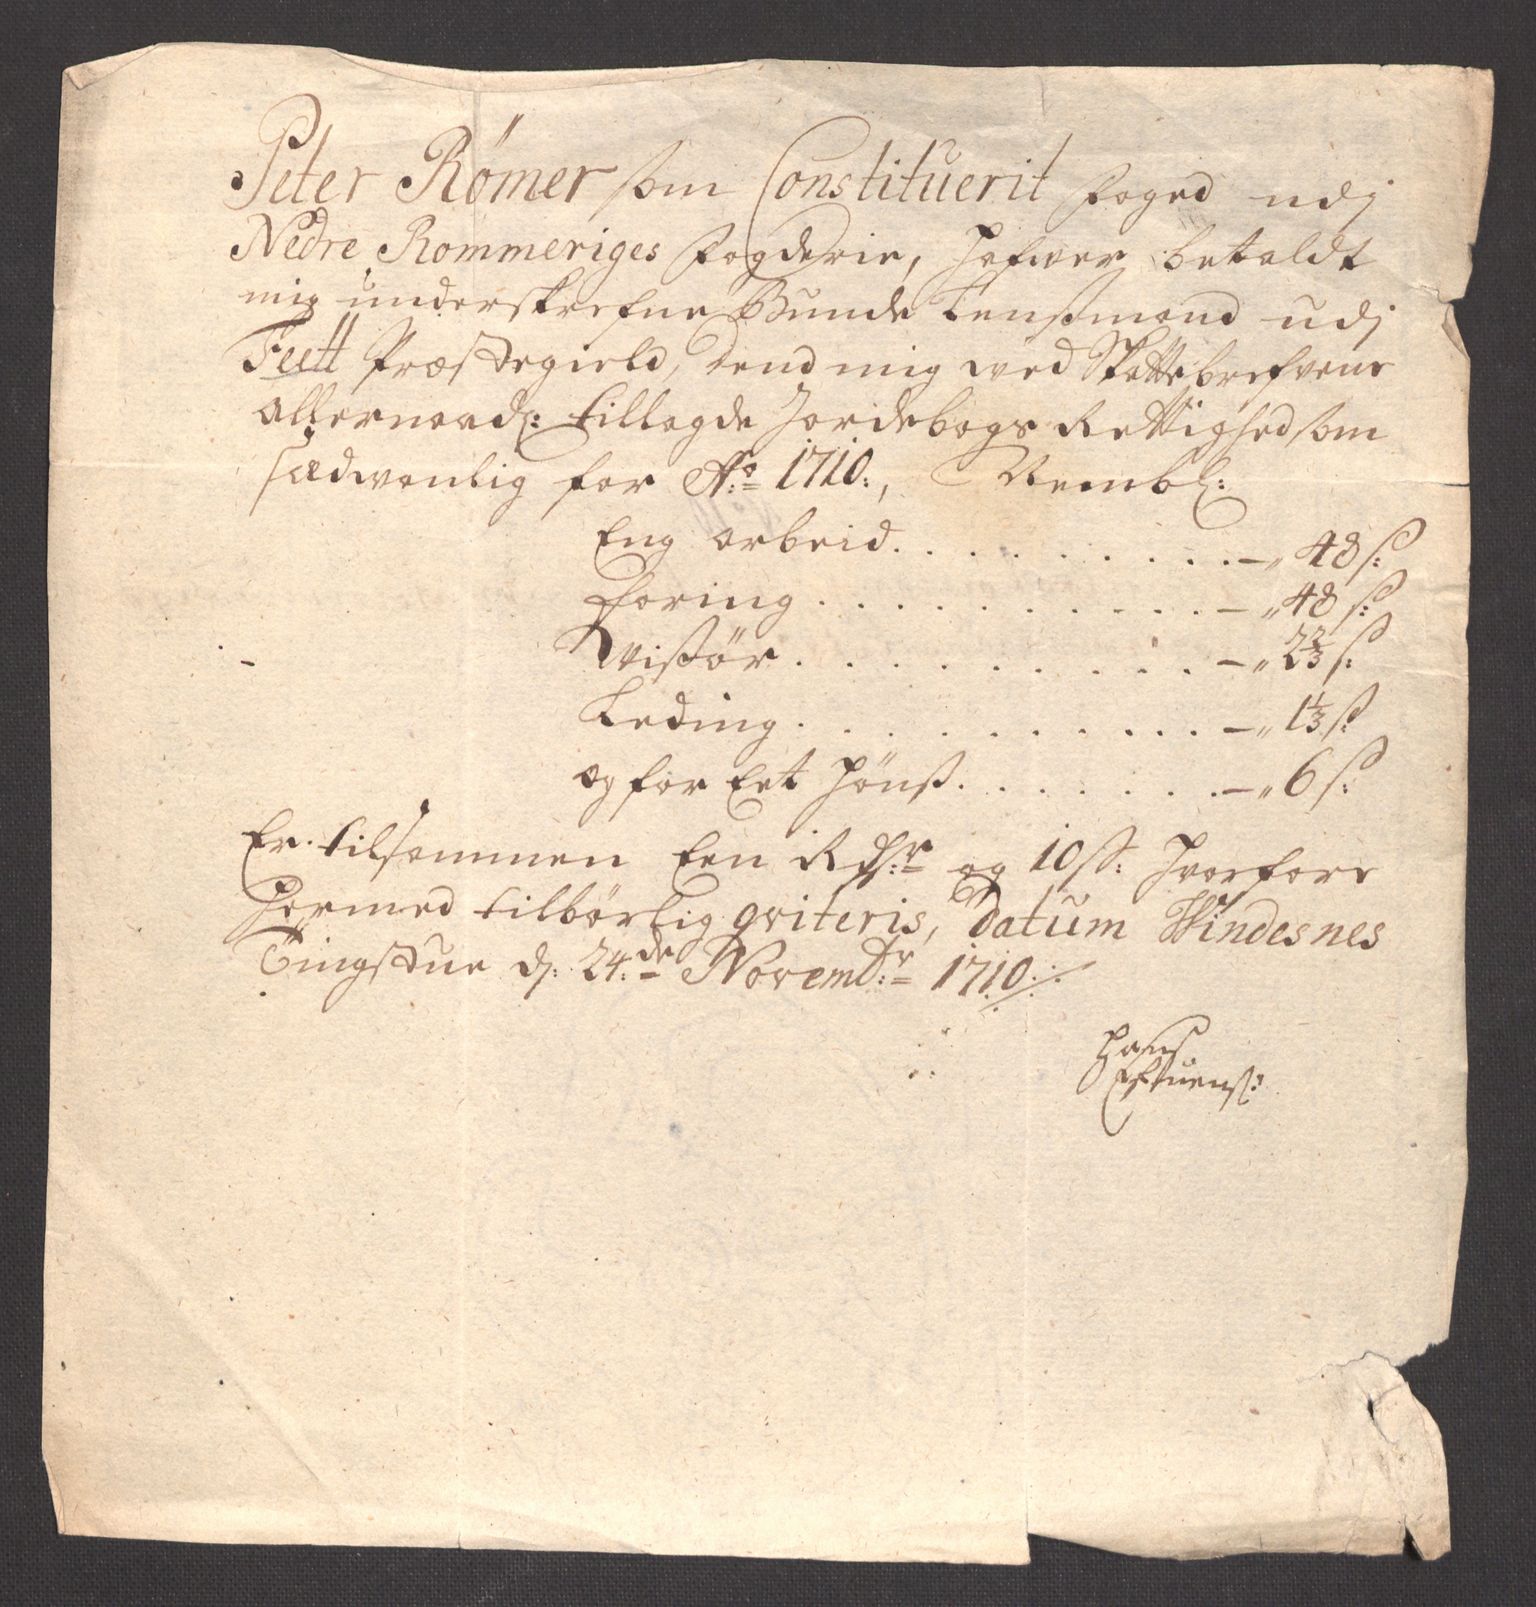 Peter Römer som Constituerit foged udj
Nedre Rommeriges fogderie, hafwer betaldt
mig underskrefne Bunde Lensmand udj
Feett Præstegield, dend mig wed Skattebrefvene
allernaad: tillagde Jordebogs Rettighed som
sædwanlig for Ao: 1710:, Nembl:
Eng arbeid . . . . . . . . . . – „ 48 s:
Foring . . . . . . . . . . – „ 48 s:
Wissør . . . . . . . . . . – „ 2⅔ s:
Leding . . . . . . . . . . – „ 1⅓ s:
og for Eet hønß . . . . . . . – „ 6 s:
Er tilsammen Een Rdr: og 10 s: hvorfore
hermed tilbørlig qviteris, datum Windesnes
Tingstue d: 24:de Novembr: 1710:
Hans